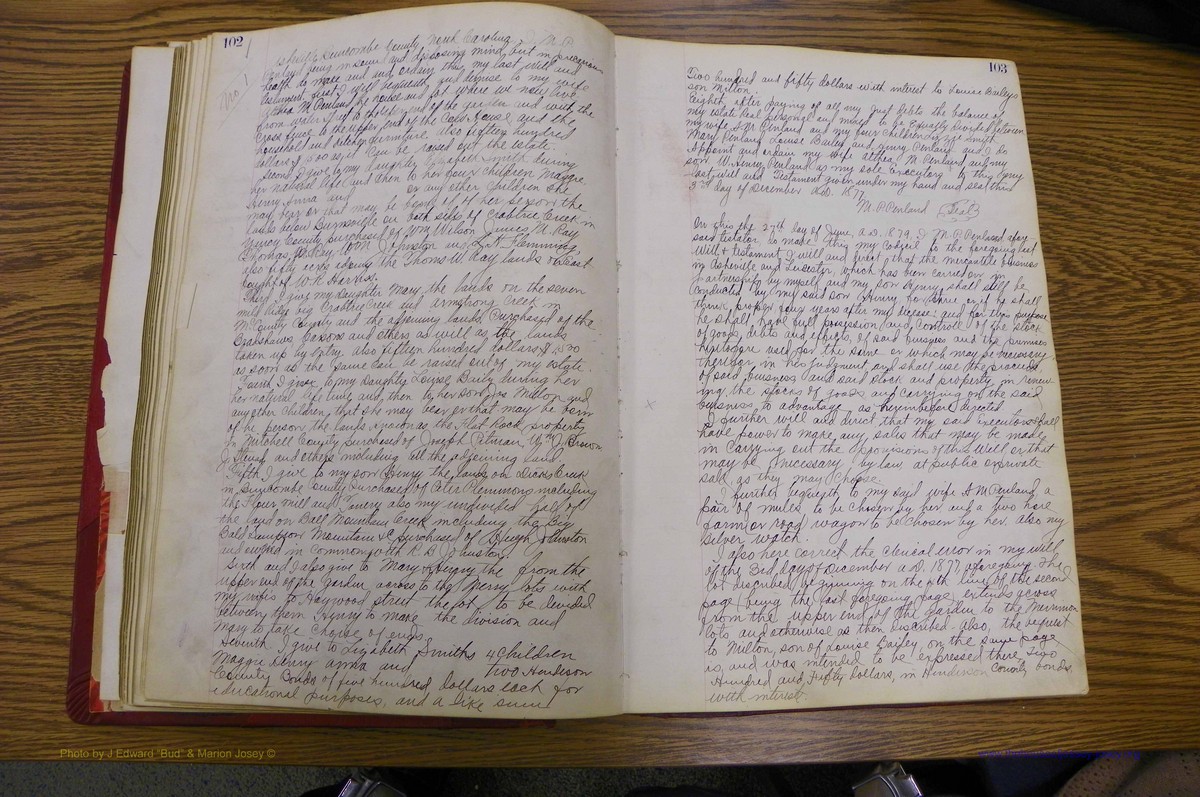 102
State Buncombe County North Carolina I M. P.
Penland being in sound and disposing mind but in precarious
health do make and ordain this my last will and
Testament first I will bequeath and demise to my wife
Althea M Penland the house and lot where we now live
from water St up to the upper end of the garden and with the
cross fence to the upper end of the Coal House and the
household and kitchen furniture also fifteen hundred
dollars as soon as it can be raised out the estate.
Second I give to my daughter Elizabeth Smith during
her natural life and then to her four children Maggie
Henry Anna and or any other children she
may bear or that may be born of her person the
lands below Burnsville on both sides of Crabtree Creek in
Yancy County purchased of Wm Wilson James M. Ray
Thomas W Ray Wm Johnston L. H. Flemming
also fifty acres adjoining the Thomas W Ray lands on East
bought of W. R. Harris.
Third I give my daughter Mary the lands on the seven
mile Ridge big Crabtree Creek and Armstrong Creek in
McCounty County and the adjoining lands purchased of the
Bradshaws Carsons and others as well as the lands
taken up by Entry also fifteen hundred dollars
as soon as the same can be raised out of my estate.
Fourth I give to my daughter Louise Baily during her
her natural life time and then to her son Milton and
any other children that she may bear or that may be born
of her person the lands known as the Flat Rock property
in Mitchell County purchased of Joseph Pitman Wm J Brown
J and others including all the adjoining land
Fifth I give to my son Henry the lands on Dicks Creek
in Buncombe County purchased of Peter Plemmons including
the Flour mill and also my undivided half of
the land on Bald Mountain Creek including the Big
Bald Sampson Mountain &c purchased of Hugh Johnston
and owned in common with R. B. Johnston.
Sixth and I also give to Mary & Henry the from the
upper end of the garden across to the Merrimon lots with
my wifes to Haywood street the lot to be divided
between them Henry to make the division and
Mary to take choice of ends
Seventh I give to Elizabeth Smiths 4 children
Maggie Henry Anna and two Henderson
County Bonds of five hundred dollars each for
educational purposes, and a like sum
103
Two hundred and fifty dollars with interest to Louise Baileys
son Milton.
Eighth after paying of all my just debts the balance of
my estate Real personal and mixed to be Equally divided between
my wife A M Penland and my four children Lizzie Smith
Mary Penland Louise Bailey and Henry Penland and I do
Appoint and ordain my wife Althea M Penland and my
son W. Henry Penland as my sole executors to this my
last will and Testament given under my hand and seal this
3rd day of December A.D. 1877
M. P. Penland (Seal)
On this the 27th day of June, A.D. 1879, I M. P. Penland afore
said testator, do make this my Codicil to the foregoing last
Will & testament I will and direct, that the mercantile business
in Asheville and Leicester, which has been carried on in
partnership by myself and my son Henry, shall still be
conducted by my said son Henry for three or if he shall
think proper four years after my decease: and for this purpose
he shall have full possession and controll of the stock
of goods, debts and effects, of said business and the premises
heretofore used for the same or which may be necessary
therefor in his judgment and shall use the proceeds
of said business and said stock and property in renew-
ing the stocks of goods and carrying on the said
business to advantage as hereinbefore directed.
I further will and direct that my said Executors shall
have power to make any sales that may be made
in carrying out the provisions of this Will or that
may be necessary by law, at public or private
sale as they may choose.
I further bequeath to my said wife A M Penland a
pair of mules, to be chosen by her and a two horse
farm or road wagon to be chosen by her, also my
silver watch.
I also here correct the clerical error in my will
of the 3rd day of December A.D. 1877 aforegoing. The
lot described beginning on the 9th line of the second
page (being the last foregoing page) extends across
from the upper end of the Garden to the Merrimon
lots and otherwise as then described. also, the bequest
to Milton, son of Louise Bailey, on the same page
is, and was intended to be expressed there Two
Hundred and Fifty dollars, in Henderson County bonds
with interest.
Photo by J Edward "Bud" & Marion Josey ©